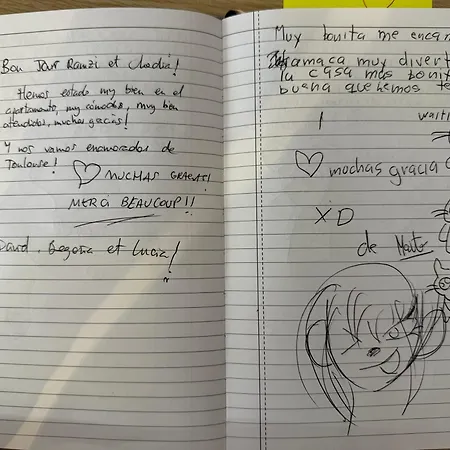 Bon Jour Ramzi et Chadia!
Hemos estado my bien en el
apartamento, my cómodos, muy bien
atendidos, muchas gracias!
Y nos vamos enamorados de
Toulouse!
MUCHAS GRACIAS!
MERCI BEAUCOUP!!
David, Begoña et Lucia!
Muy bonita me encan
amaca muy divert
la casa mas bonit
buena que hemos te
waiti
mochas gracia
XD
de